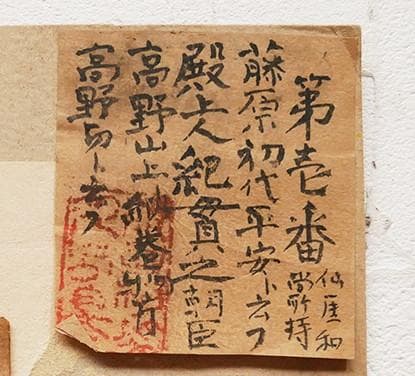 第壱番
仙厓和
尚所持
藤原初代平安ト云フ
殿上人紀貫之朝臣
高野山上納巻
高野切ト云フ